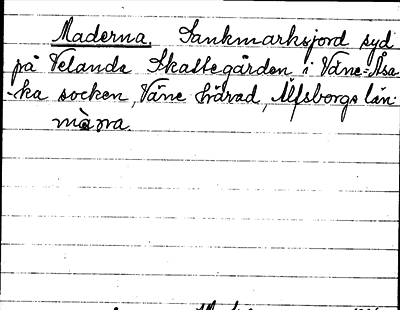 Maderna. Sankmarksjord syd
på Velanda Skattegården i Väne-Åsa
-ka socken, Väne härad, Älfsborgs län.